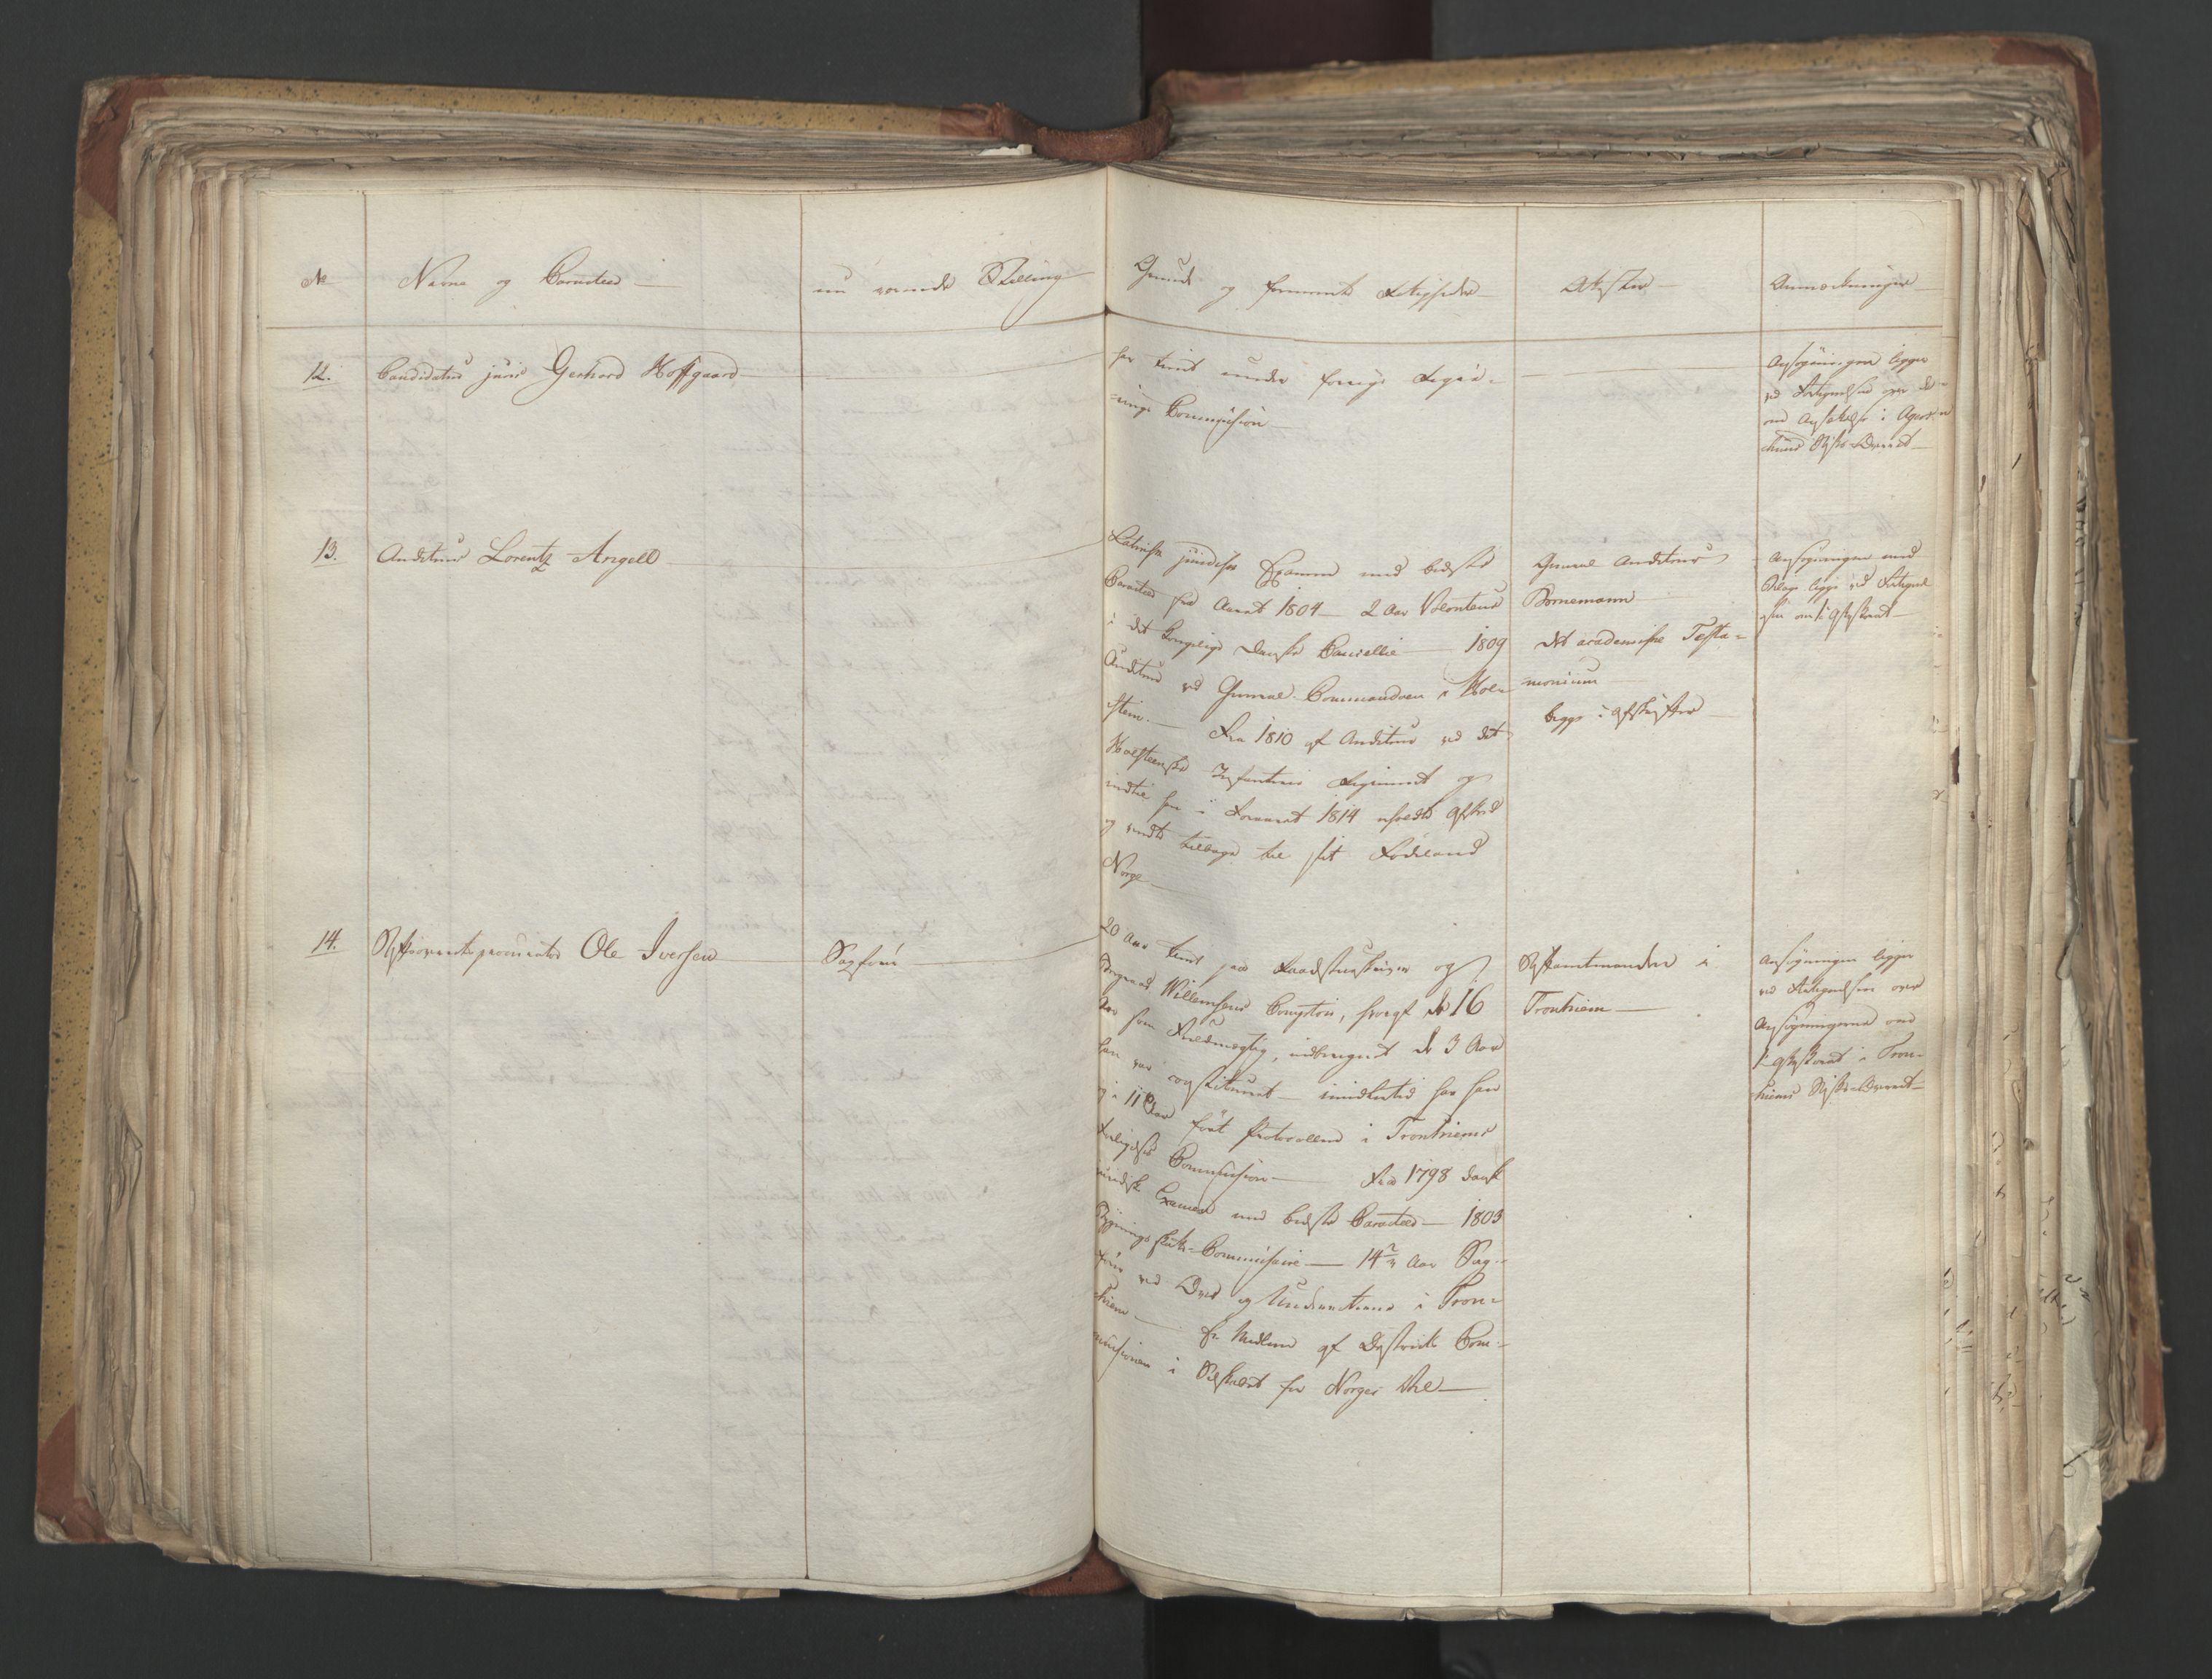 No Navne og Caracteer nu værende Stilling Grunde og formeente Rettigheder Attester Anmærkninger
12. Candidatus juris Gerhard Hoffgaard
har tient under forrige Regie-
rings Commission
Ansøgningen ligger
ved Fortegnelsen over de
om Ansættelse i Agers-
huus Stifts-Overret
13. Auditeur Lorentz Angell
Latinsk juridisk Examen med bedste
Caracteer fra Aaret 1804 - 2 Aar Volonteur
i det Kongelige Danske Cancellie - 1809
Auditeur ved General-Commandoen i Hol-
steen. - Fra 1810 af Auditeur ved det
Holsteenske Infanteri Regiment og
indtil han i Foraaret 1814 erholdt Afsked
og vendte tilbage til sit Fødeland
Norge
General Auditeur
Bornemann
det academiske Testa-
monium
begge i Afskrifter
Ansøgningen med
Bilage ligge ved Fortegnel-
sen om
14. Stiftsoverretsprocurator Ole Iversen
Sagfører
20 Aar tient paa Raadstueskriver og
Borgemd. Willemsens Comptoir, hvoraf de 16
Aar som Fuldmægtig, indberegnet de 3 Aar
han var constitueret - imidlertid har han
og i 11 Aar ført Protocollen i Tronhiems
Forligelses Commission - Fra 1798 dansk
juridisk Examen med bedste Caracteer - 1803
Commissair - 14 Aar Sag-
fører ved Over og Underretterne i Tron-
hiem - Er Medlem af Districts Com-
missionen i Selskabet for Norges Vel
Stiftamtmanden i
Tronhiem
Ansøgningen ligger
ved Fortegnelsen over
Ansøgningerne om
i Tron-
hiems Stifts-Overret